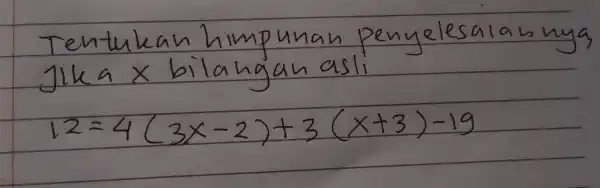 Tentukan himpunan penyelesaiannya,
Jika x bilangan asli
12 = 4 (3x-2)+3 (x+3)-19